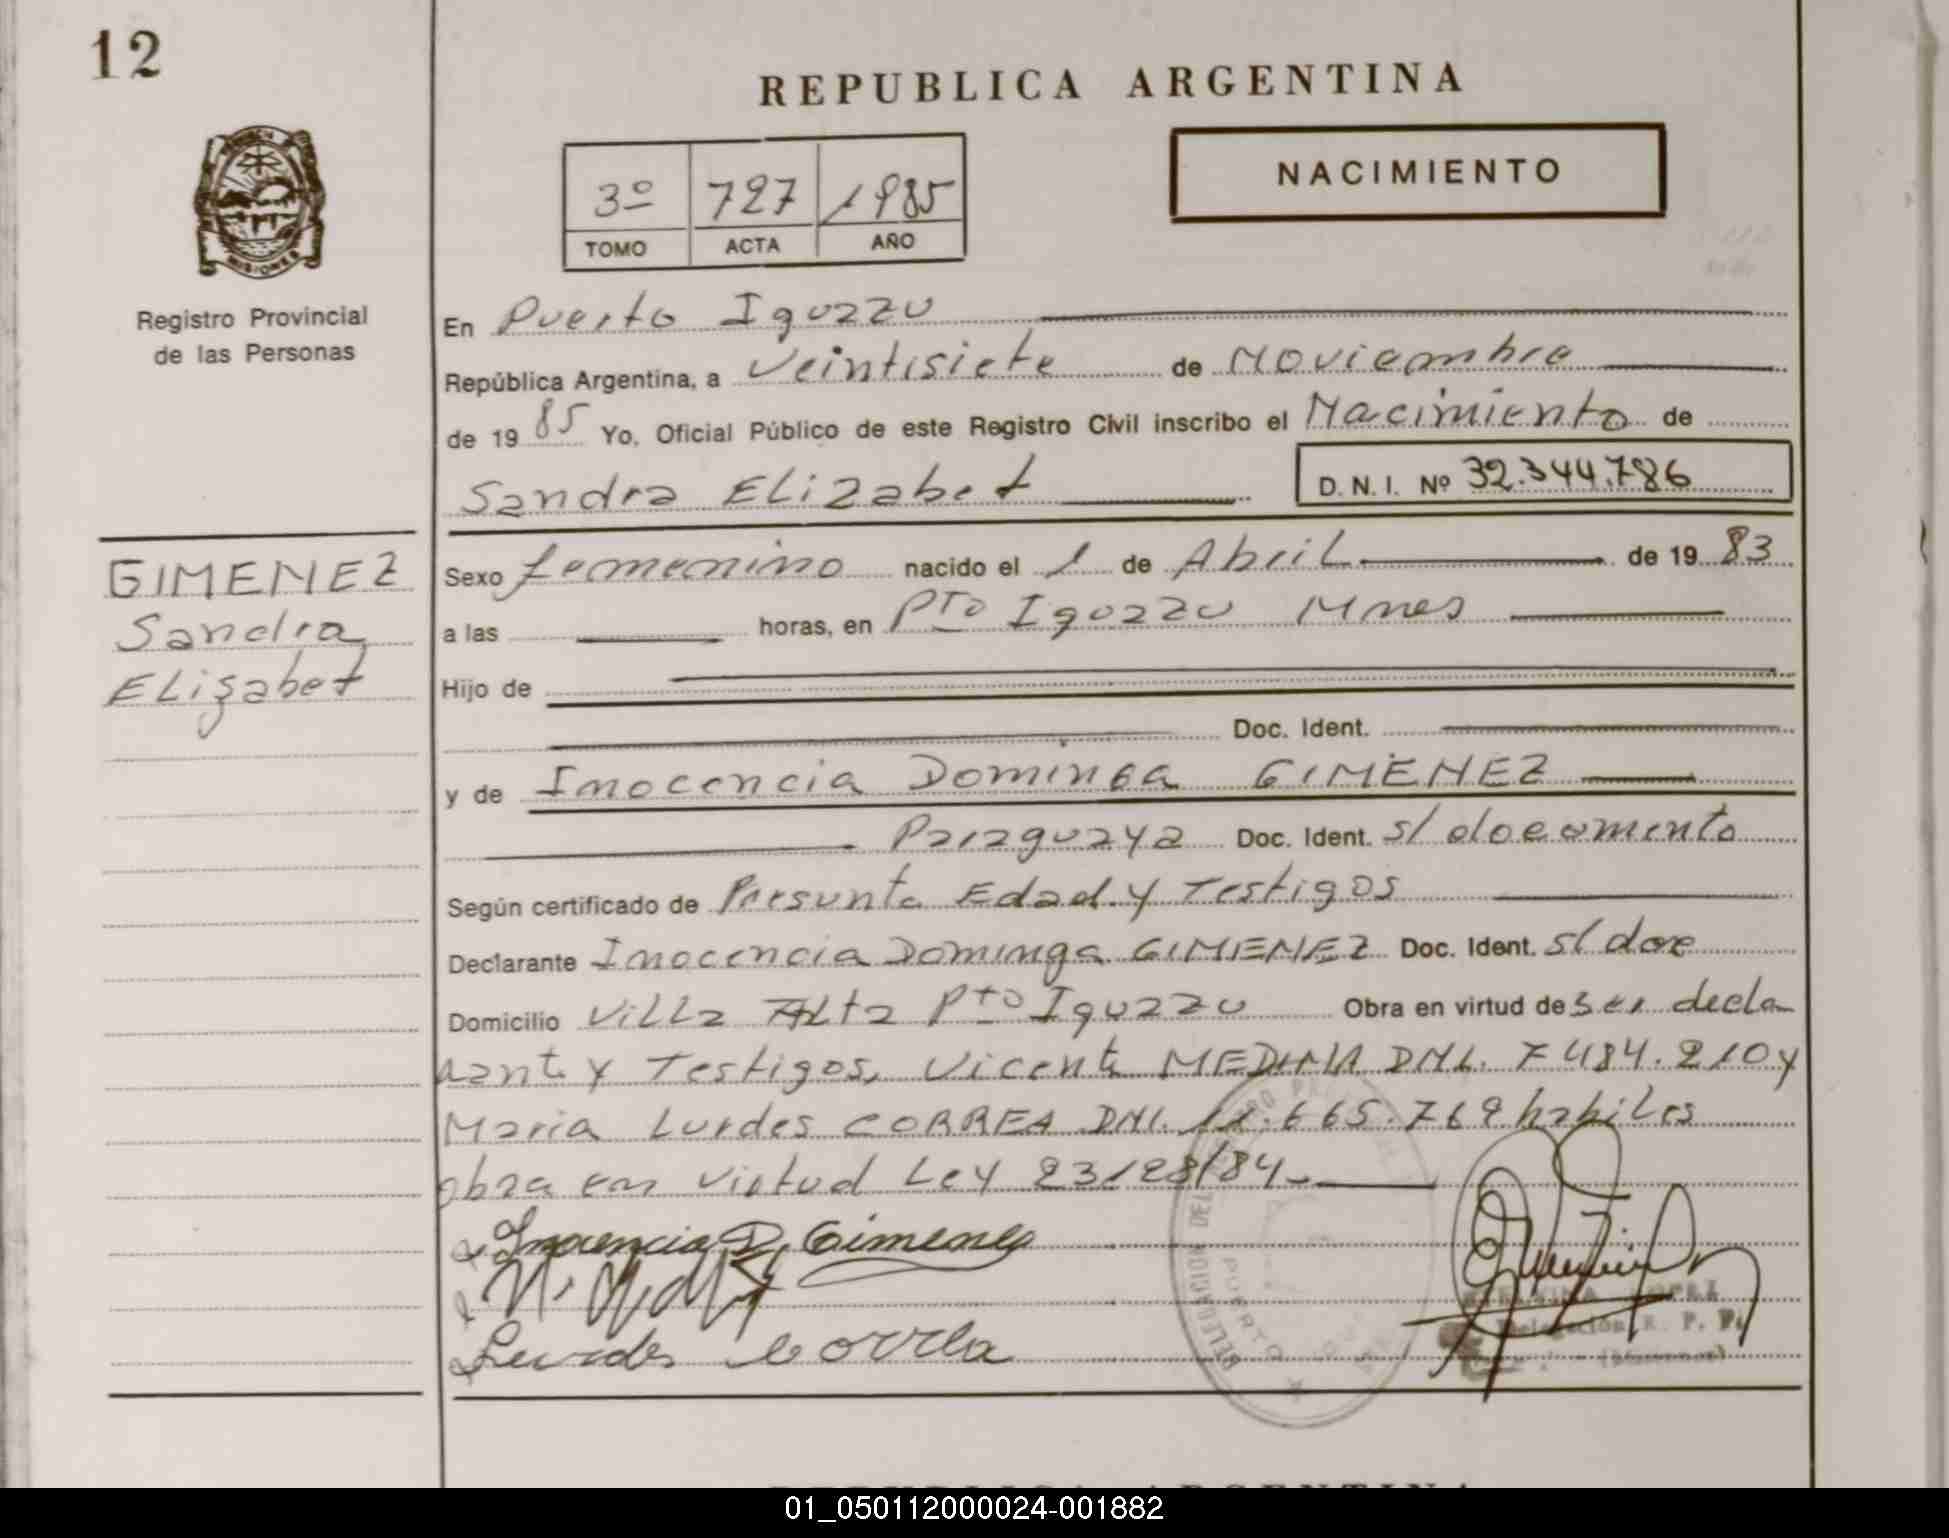 12
REPUBLICA ARGENTINA
NACIMIENTO
3º 727 1985
TOMO ACTA AÑO
MISIONES
Registro Provincial
de las Personas
En Puerto Iguazu
República Argentina, a Veintisiete de Noviembre
de 1985 Yo, Oficial Público de este Registro Civil inscribo el Nacimiento de
Sandra ELizabet D. N. I. Nº 32.344.786
GIMENEZ
Sandra
ELizabet
Sexo femenino nacido el 1 de Abril de 1983
a las horas, en Pto Iguazu Mnes
Hijo de
Doc. Ident.
y de Inocencia Dominga GIMENEZ
Paraguaya Doc. Ident. s/ documento
Según certificado de Presunta Edad y Testigos
Declarante Inocencia Dominga GIMENEZ Doc. Ident. s/ doc
Domicilio Villa Alta Pto Iguazu Obra en virtud de ser decla
rante y Testigos, Vicente MEDINA DNI. 7484.210 y
Maria Lurdes CORREA DNI. 11.665.769 habiles
obra en virtud Ley 23128/84
Inocencia D. Gimenez
Lurdes Correa
DELEGACION DEL
PUERTO
Delegación R. P. P.
(Misiones)
REPUBLICA ARGENTINA
01_050112000024-001882